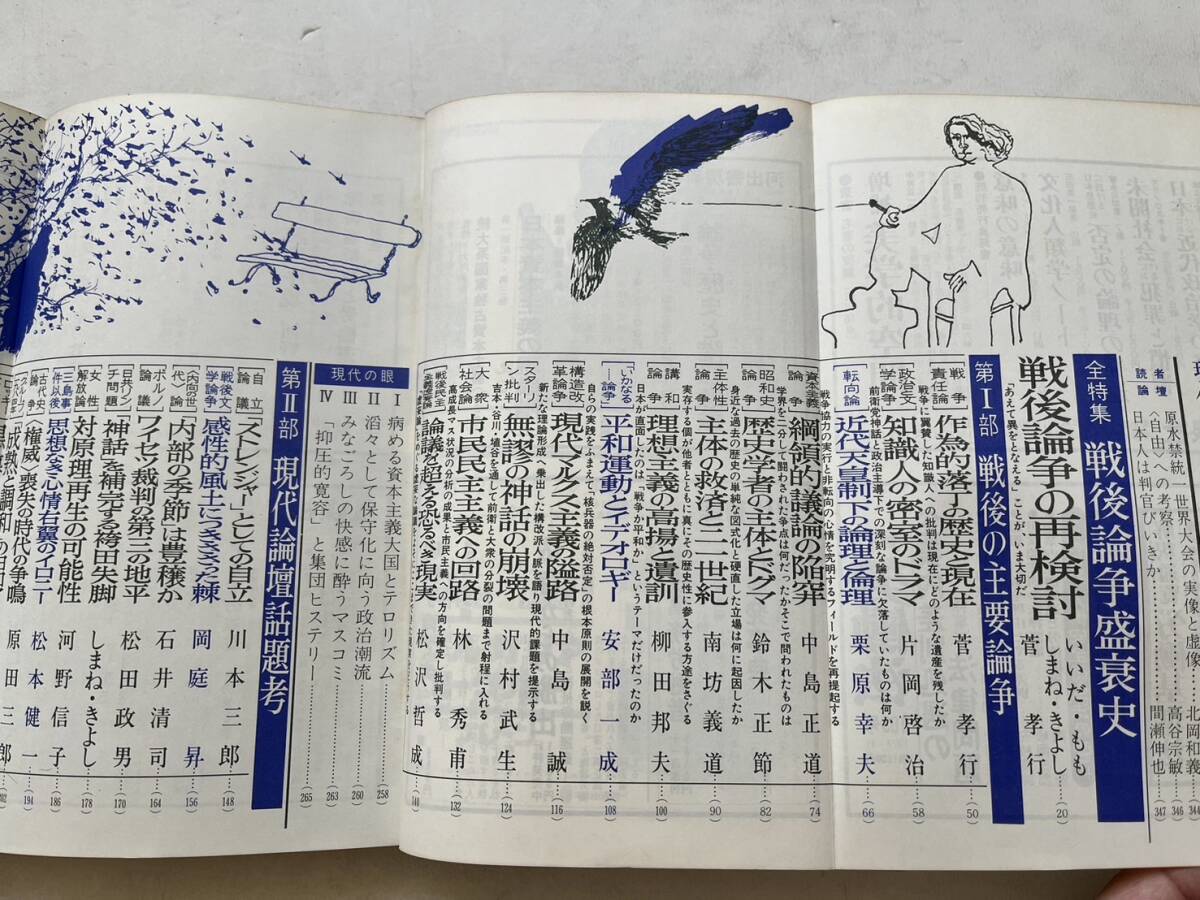 読者論壇
原水禁統一世界大会の実像と虚像……北岡和義 344
〈自由〉への考察……高谷宗敏 346
日本人は判官びいきか……間瀬伸也 347
全特集 戦後論争盛衰史
戦後論争の再検討
いいだ・もも
しまね・きよし
菅孝行……(20)
「あえて異をとなえる」ことが、いま大切だ
第Ⅰ部 戦後の主要論争
[戦争責任論] 作為的落丁の歴史と現在 菅孝行……(50)
戦争に翼賛した知識人への批判は現在にどのような遺産を残したか
[政治文学論争] 知識人の密室のドラマ 片岡啓治……(58)
前衛党神話と政治主導下での深刻な論争に欠落していたものは何か
[転向論] 近代天皇制下の論理と倫理 栗原幸夫……(66)
戦争協力の実行と非転向の心情を究明するフィールドを再提起する
[資本主義論争] 綱領的議論の陥穽 中島正道……(74)
学界を二分して闘わされた争点は何だったかそこで問われたものは
[昭和史論争] 歴史学者の主体とドグマ 鈴木正節……(82)
身近な過去の歴史の単純な図式化と硬直した立場は何に起因したか
[主体性論争] 主体の救済と二一世紀 南坊義道……(90)
実存する個が他者とともに真にその歴史性に参入する方途をさぐる
[講和論争] 理想主義の高揚と遺訓 柳田邦夫……(100)
日本が直面したのは、「戦争か平和か」というテーマだけだったのか
[「いかなる」論争] 平和運動とイデオロギー 安部一成……(108)
自らの実践をふまえて「核兵器の絶対否定」の根本原則の展開を説く
[構造改革論争] 現代マルクス主義の隘路 中島誠……(116)
新たな理論形成へ乗出した構改派人脈を語り現代的課題を提示する
[スターリン批判] 無謬の神話の崩壊 沢村武生……(124)
吉本・谷川・埴谷を通して前衛と大衆の分裂の問題まで射程に入れる
[大衆社会論] 市民民主主義への回路 林秀甫……(132)
高成長・マス状況の分析の成果と市民主義への方向を確定し批判する
[戦後民主主義論争] 論議を超える恐るべき現実 松沢哲成……(140)
現代の眼
Ⅰ 病める資本主義大国とテロリズム……258
Ⅱ 滔々として保守化に向う政治潮流……260
Ⅲ みなごろしの快感に酔うマスコミ……263
Ⅳ 「抑圧的寛容」と集団ヒステリー……265
第Ⅱ部 現代論壇話題考
[自立論議] 「ストレンジャー」としての自立 川本三郎……(148)
[戦後文学論争] 感性的風土につきささった棘 岡庭昇……(156)
[〈内向の世代〉論] 「内部の季節」は豊穣か 石井清司……(164)
[ポルノ論議] ワイセツ裁判の第三の地平 松田政男……(170)
[日共リンチ問題] 神話を補完する袴田失脚 しまね・きよし……(178)
[女性解放論] 対原理再生の可能性 河野信子……(186)
[三島事件以後] 思想なき心情右翼のイロニー 松本健一……(194)
[古代史論争] 〈権威〉喪失の時代の争鳴 原田三郎……(202)